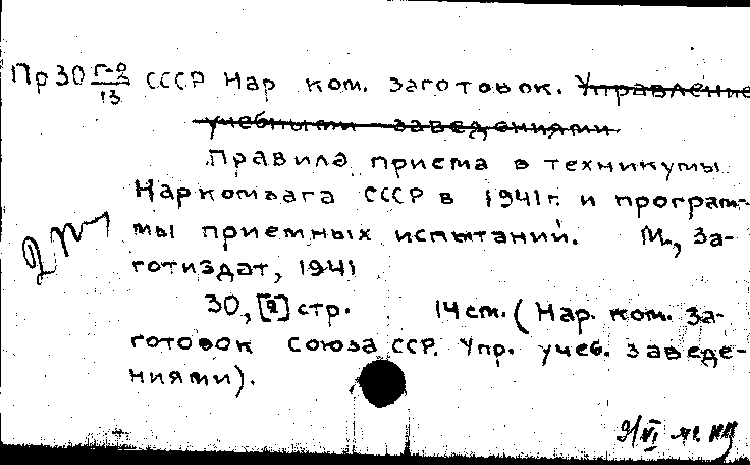 Пр30 Г-9/13 СССР Нар ком. Заготовок. Управление
учебными заведениями
Правила приема в техникумы
Наркомзага СССР в 1941г. и програм-
мы приемных испытаний. М., За-
готиздат, 1941
30, [2] стр. 14 см. (Нар. ком. За-
готовок Союза ССР. Упр. учеб. заведе-
ниями).